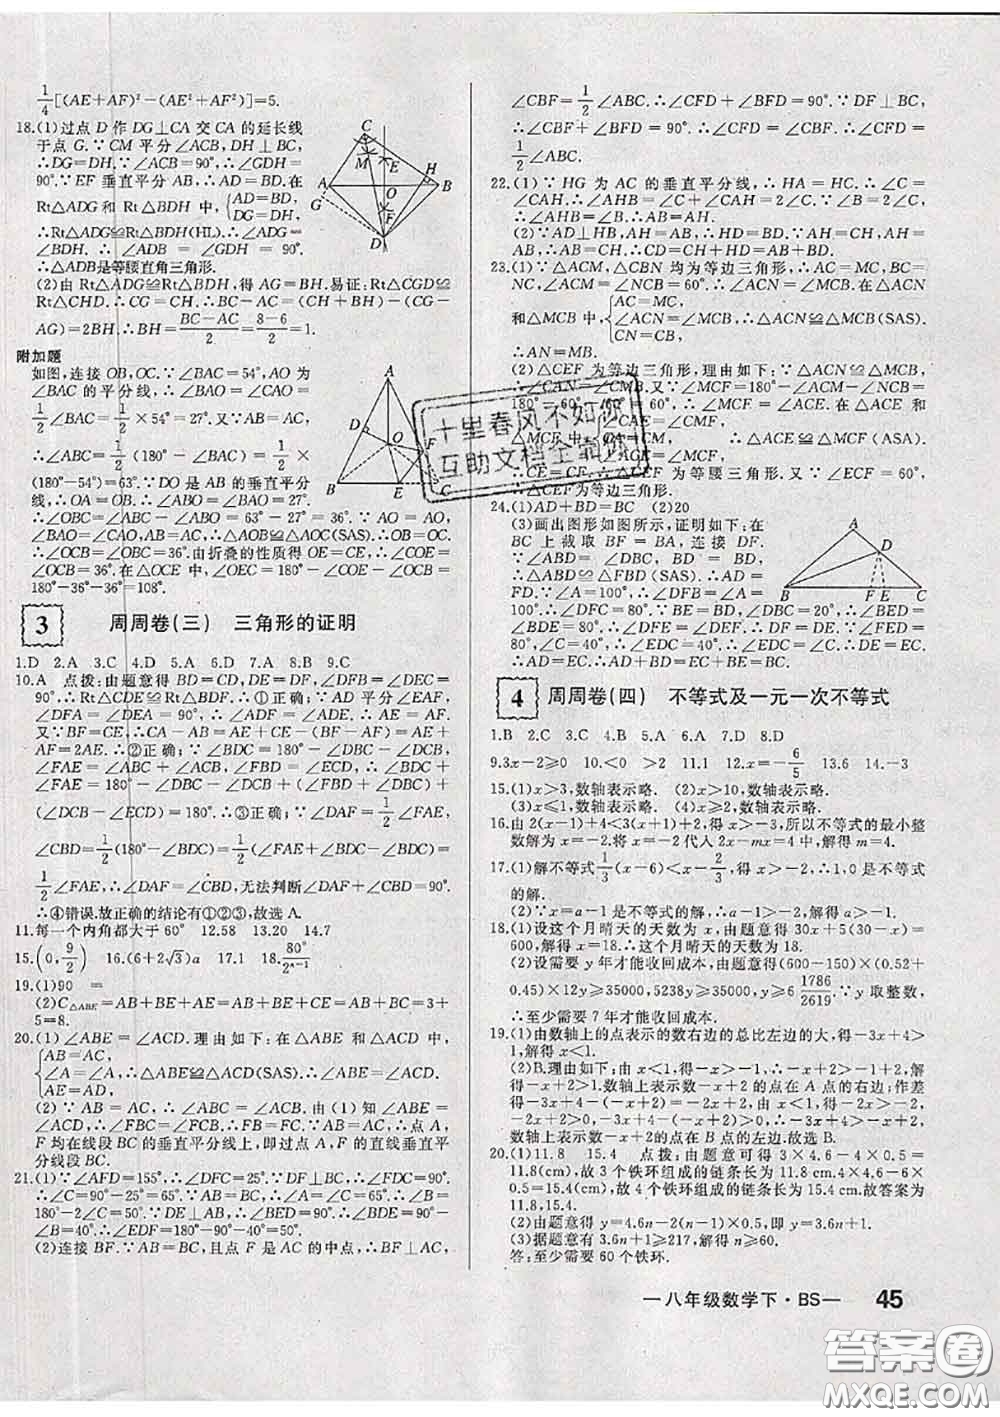 1/4[(AE+AF)²-(AE²+AF²)]=5.
18.(1)过点 D 作 DG⊥CA 交 CA 的延长线
于点 G.∵CM 平分∠ACB,DH⊥BC,
∴DG=DH.∵∠ACB=90°,∴∠GDH=
90°.∵EF 垂直平分 AB,∴AD=BD.在
Rt△ADG 和 Rt△BDH 中,{AD=BD, DG=DH.
∴Rt△ADG≌Rt△BDH(HL).∴∠ADG=
∠BDH. ∴∠ADB = ∠GDH = 90°.
∴△ADB是等腰直角三角形.
(2)由 Rt△ADG≌Rt△BDH,得 AG=BH.易证:Rt△CGD≌
Rt△CHD. ∴CG = CH. ∴BC - AC = (CH + BH) - (CG -
AG)=2BH.∴BH=(BC-AC)/2=(8-6)/2=1.
附加题
如图,连接 OB,OC.∵∠BAC=54°,AO 为
∠BAC 的平分线,∴∠BAO=∠CAO=
1/2∠BAC=1/2×54°=27°.又∵AB=AC,
∴∠ABC = 1/2(180° - ∠BAC) = 1/2 ×
(180°-54°)=63°.∵DO 是 AB 的垂直平
分线,∴OA=OB.∴∠ABO=∠BAO=27°.
∴∠OBC=∠ABC-∠ABO=63°-27°=36°.∵AO=AO,
∠BAO=∠CAO,AB=AC,∴△AOB≌△AOC(SAS).∴OB=OC.
∴∠OCB=∠OBC=36°.由折叠的性质得 OE=CE,∴∠COE=
∠OCB=36°.在△OCE 中,∠OEC=180°-∠COE-∠OCB=
180°-36°-36°=108°.
3 周周卷(三) 三角形的证明
1.D 2.A 3.C 4.D 5.A 6.D 7.A 8.B 9.C
10.A 点拨:由题意得 BD=CD,DE=DF,∠BFD=∠DEC=
90°,∴Rt△CDE≌Rt△BDF.∴①正确;∵AD 平分∠EAF,
∠DFA = ∠DEA = 90°, ∴∠ADF = ∠ADE. ∴AE = AF.
又∵BF=CE,∴CA-AB=AE+CE-(BF-AE)=AE+
AF=2AE.∴②正确;∵∠BDC=180°-∠DBC-∠DCB,
∠FAE=∠ABC+∠ACB,∠FBD=∠ECD,∴∠BDC+
∠FAE = 180° - ∠DBC - ∠DCB + (∠FBD + ∠DBC) +
(∠DCB-∠ECD)=180°.∴③正确;∵∠DAF=1/2∠FAE,
∠CBD=1/2(180°-∠BDC)=1/2(∠FAE+∠BDC-∠BDC)=
1/2∠FAE,∴∠DAF=∠CBD,无法判断∠DAF+∠CBD=90°.
∴④错误.故正确的结论有①②③,故选 A.
11.每一个内角都大于 60° 12.58 13.20 14.7
15.(0,9/2) 16.(6+2√3)a 17.1 18.80°/2ⁿ⁻¹
19.(1)90 =
(2)C△ABE=AB+BE+AE=AB+BE+CE=AB+BC=3+
5=8.
20.(1)∠ABE=∠ACD.理由如下:在△ABE 和△ACD 中,
{AB=AC, ∠A=∠A, AE=AD, ∴△ABE≌△ACD(SAS).∴∠ABE=∠ACD.
(2)∵AB=AC,∴∠ABC=∠ACB.由(1)知∠ABE=
∠ACD,∴∠FBC=∠FCB.∴FB=FC.∵AB=AC,∴点 A,
F 均在线段 BC 的垂直平分线上,即过点 A,F 的直线垂直平
分线段 BC.
21.(1)∵∠AFD=155°,∴∠DFC=25°.∵DF⊥BC,∴∠FDC=90°.
∴∠C=90°-25°=65°.∵AB=BC,∴∠A=∠C=65°.∴∠B=180°-
∠A-∠C=50°.∵DE⊥AB,∴∠BED=90°.∴∠BDE=90°-
∠B=40°.∴∠EDF=180°-90°-∠BDE=50°.
(2)连接 BF.∵AB=BC,且点 F 是 AC 的中点,∴BF⊥AC,
∠CBF=1/2∠ABC.∴∠CFD+∠BFD=90°.∵DF⊥BC,
∴∠CBF+∠BFD=90°.∴∠CFD=∠CBF.∴∠CFD=
1/2∠ABC.
22.(1)∵HG 为 AC 的垂直平分线,∴HA=HC.∴∠C=
∠CAH.∴∠AHB=∠C+∠CAH=2∠C.∵∠B=2∠C,
∴∠AHB=∠B.∴AH=AB.
(2)∵AD⊥HB,AH=AB,∴DH=BD.∵AH=CH,AH=
AB,∴CH=AB.∴CD=CH+DH=AB+BD.
23.(1)∵△ACM,△CBN 均为等边三角形,∴AC=MC,BC=
NC,∠ACM=∠NCB=60°.∴∠ACN=∠MCB.在△ACN
和△MCB 中,{AC=MC, ∠ACN=∠MCB, CN=CB, ∴△ACN≌△MCB(SAS).
∴AN=MB.
(2)△CEF 为等边三角形,理由如下:∵△ACN≌△MCB,
∴∠CAN=∠CMB.又∵∠MCF=180°-∠ACM-∠NCB=
180°-60°-60°=60°,∴∠MCF=∠ACE.在△CAE
∠CAE=∠CMF,
∴△CAE≌△CMF(ASA).
∴CE=CF.∴△CEF 为等腰三角形.又∵∠ECF=60°,
∴△CEF 为等边三角形.
24.(1)AD+BD=BC (2)20
(3)画出图形如图所示,证明如下:在
BC 上截取 BF=BA,连接 DF.
∵∠ABD=∠DBC,BD=BD,
∴△ABD≌△FBD(SAS).∴AD=
DF.∵∠A=100°,∴∠DFB=∠A=
100°.∴∠DFC=80°.∵BE=BD,∴∠BED=
∠BDE=80°.∴∠DFE=∠FED.∴DF=DE.∵∠FED=
80°,∠C=40°,∴∠EDC=40°.∴∠EDC=∠C.∴DE=EC.
∴AD=EC.∴AD+BD=EC+BE=BC.
4 周周卷(四) 不等式及一元一次不等式
1.B 2.C 3.C 4.B 5.A 6.A 7.D 8.D
9.3x-2≥0 10.<0 >2 11.1 12.x=-6/5 13.6 14.-3
15.(1)x>3,数轴表示略. (2)x>10,数轴表示略.
(3)x≤1,数轴表示略. (4)x≥2,数轴表示略.
16.由 2(x-1)+4<3(x+1)+2,得 x>-3,所以不等式的最小整
数解为 x=-2.将 x=-2 代入 2x-mx=4 中,解得 m=4.
17.(1)解不等式1/3(x-6)<-3/2,得 x>-1.∴1,0 是不等式
的解.
(2)∵x=a-1 是不等式的解,∴a-1>-2,解得 a>-1.
18.(1)设这个月晴天的天数为 x,由题意得 30x+5(30-x)=
600,解得 x=18.∴这个月晴天的天数为 18.
(2)设需要 y 年才能收回成本,由题意得(600-150)×(0.52
+0.45)×12y≥35000,5238y≥35000,y≥6 1786/2619.∵y 取整数,
∴至少需要 7 年才能收回成本.
19.(1)由数轴上的点表示的数右边的总比左边的大,得-3x+4>
1,解得 x<1.
(2)B.理由如下:由 x<1,得-x>-1.∴-x+2>-1+2,解得
-x+2>1.∴数轴上表示数-x+2 的点在 A 点的右边;作差
得-3x+4-(-x+2)=-2x+2,由 x<1,得-x>-1,
-2x+2>0,∴-3x+4-(-x+2)>0.∴-3x+4>-x+2.
∴数轴上表示数-x+2的点在 B 点的左边.故选 B.
20.(1)11.8 15.4 点拨:由题意可得 3×4.6-4×0.5=
11.8(cm).故 3 个铁环组成的链条长为 11.8 cm.4×4.6-6×0.5
=15.4(cm).故 4 个铁环组成的链条长为 15.4 cm.故答案为
11.8,15.4.
(2)由题意得 y=4.6n-2(n-1)×0.5,即 y=3.6n+1.
(3)据题意有 3.6n+1≥217,解得 n≥60.
答:至少需要 60 个铁环.
—八年级数学下·BS— 45
十里春风不如你
互助文档全靠你
答案圈
MXQE.COM